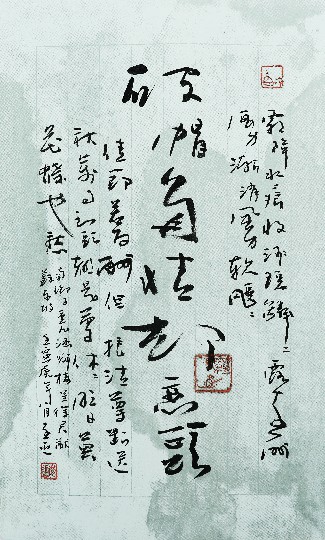 霜降水痕收淺碧鱗〻露遠洲
酒力漸消風力軟颼〻
破帽多情却戀頭
佳節若為酬但把清尊斷送
秋萬事到頭都是夢休〻明日黃
花蝶也愁
南鄉子重九涵輝樓呈徐君猷
蘇東坡